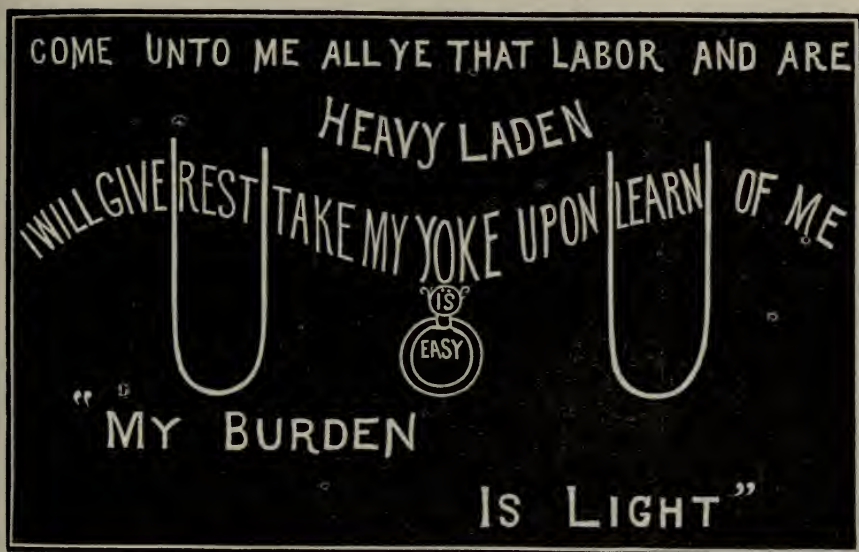 COME UNTO ME ALL YE THAT LABOR AND ARE
HEAVY LADEN
I WILL GIVE REST TAKE MY YOKE UPON LEARN OF ME
IS
EASY
"MY BURDEN
IS LIGHT"